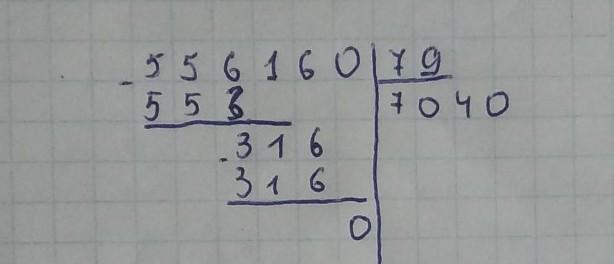 - 5 5 6 1 6 0 | 7 9
5 5 3 | 7 0 4 0
- 3 1 6
3 1 6
0